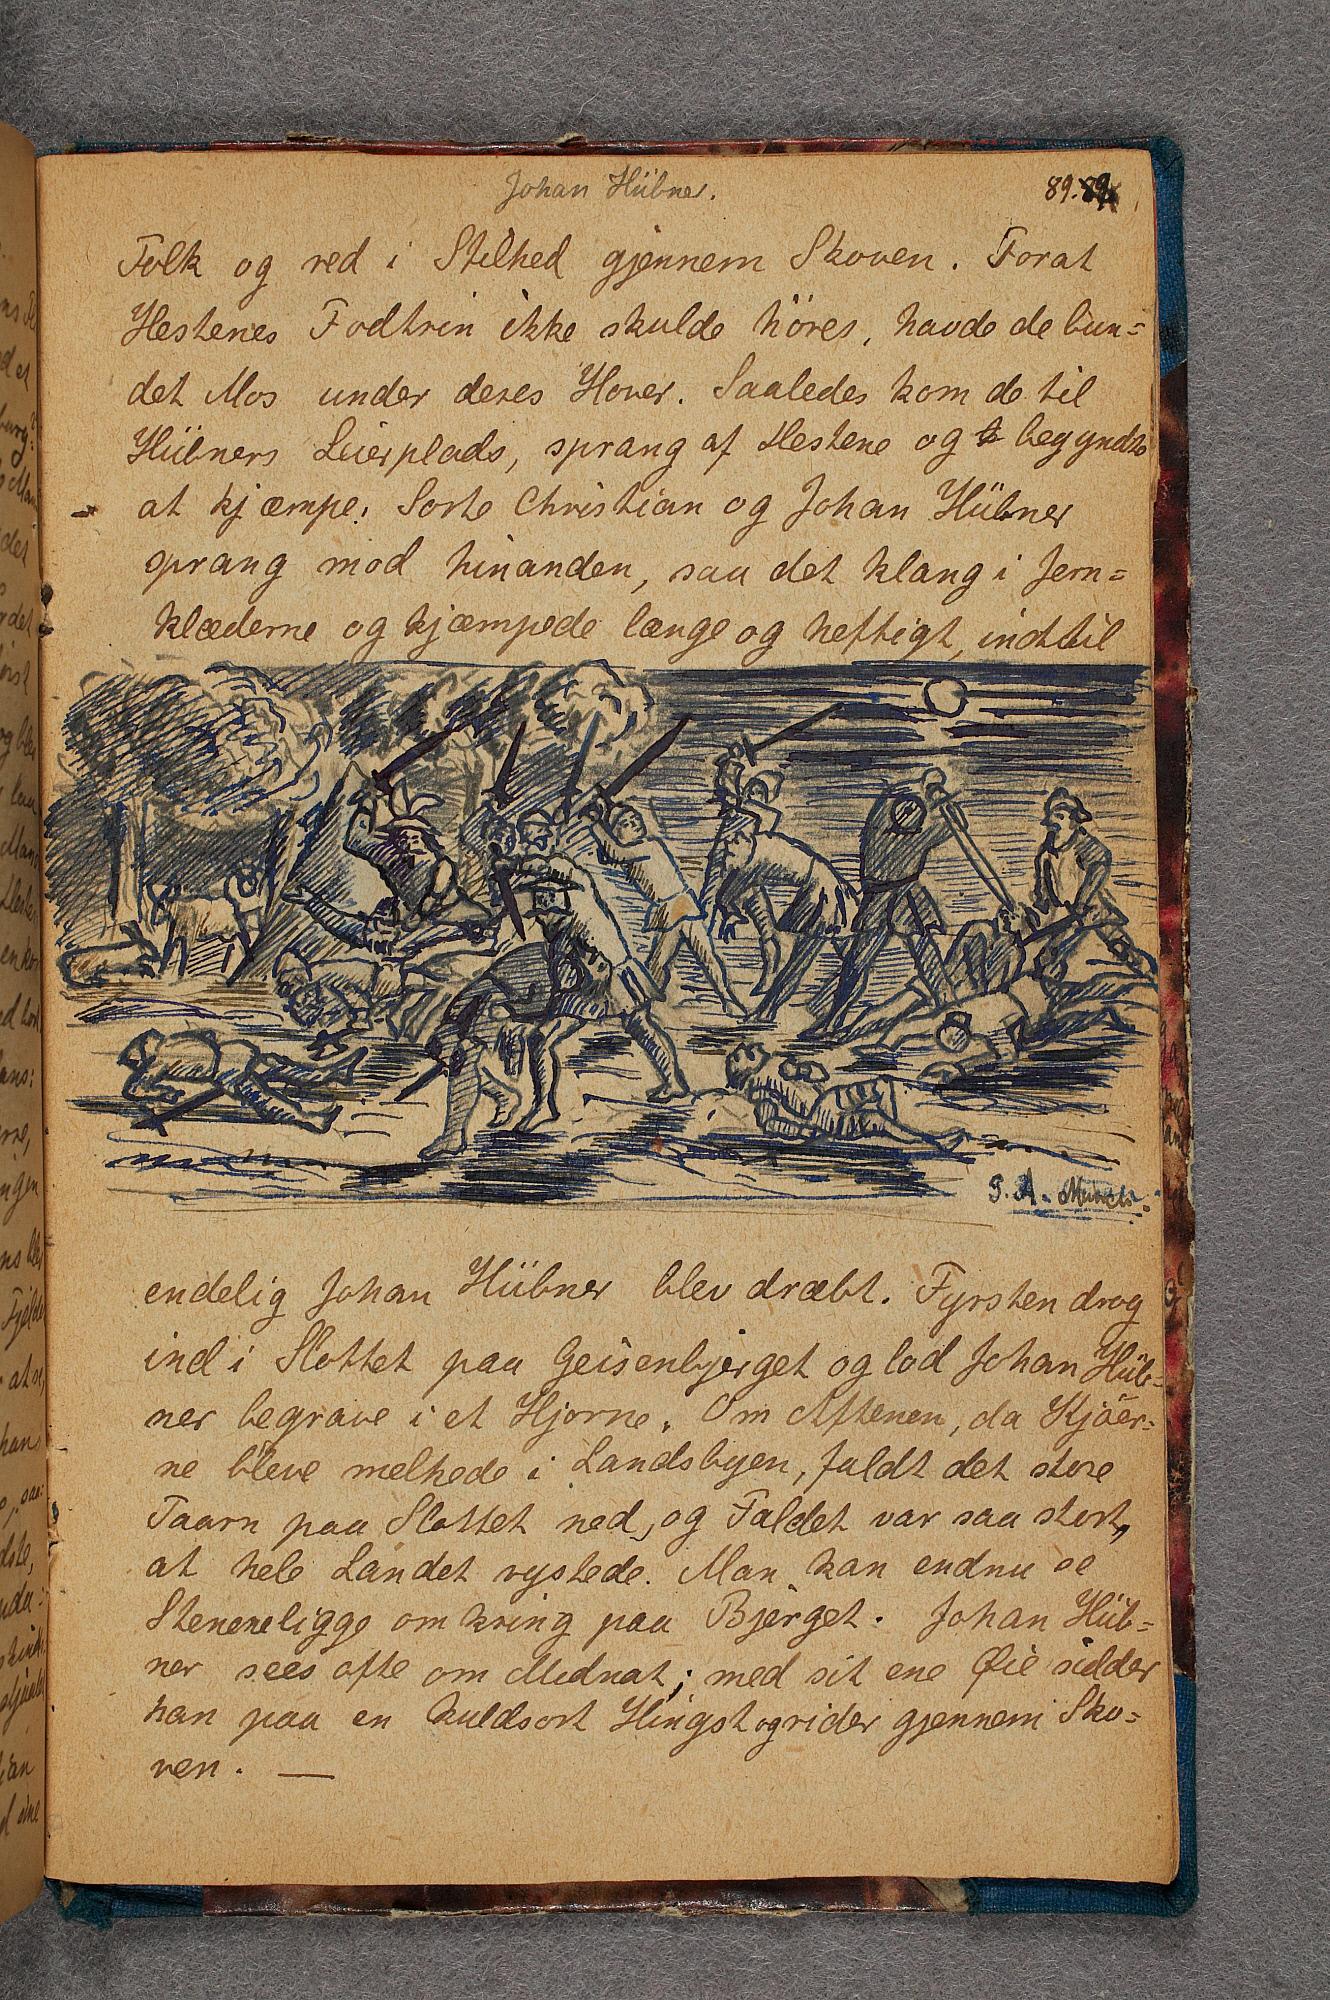 Johan Hübner.
89.
Folk og red i Stilhed gjennem Skoven. Forat
Hestenes Fodtrin ikke skulde höres, havde de bun=
det Mos under deres Hover. Saaledes kom de til
Hübners Leierplads, sprang af Hestene og begyndte
at kjæmpe. Sorte Christian og Johan Hübner
sprang mod hinanden, saa det klang i Jern=
klæderne og kjæmpede længe og heftigt, indtil
P. A. Munch.
endelig Johan Hübner blev dræbt. Fyrsten drog
ind i Slottet paa Geisenbjerget og lod Johan Hüb=
ner begrave i et Hjorne. Om Aftenen, da Kjöer=
ne bleve melkede i Landsbyen, faldt det store
Taarn paa Slottet ned, og Faldet var saa stort,
at hele Landet rystede. Man kan endnu se
Stenene ligge omkring paa Bjerget. Johan Hüb=
ner sees ofte om Midnat; med sit ene Øie sidder
han paa en kuldsort Hingst og rider gjennem Sko=
ven. —